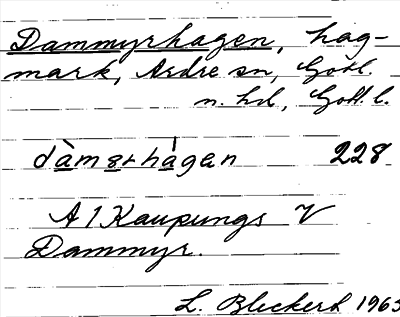 Dammyrhagen, hag-
mark, Ardre sn, Gotl.
n. hd, Gotl. l.
dàmərhágen 228
A 1 Kaupungs V
Dammyr.
L. Bleckert 1963